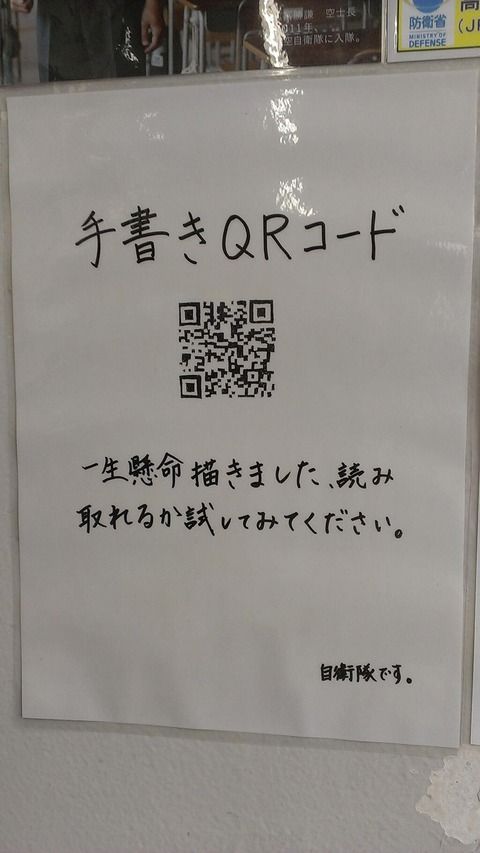 空士長
011年、
空自衛隊に入隊。
防衛省
MINISTRY OF
DEFENSE
高
(J
手書きQRコード
一生懸命描きました、読み
取れるか試してみてください。
自衛隊です。